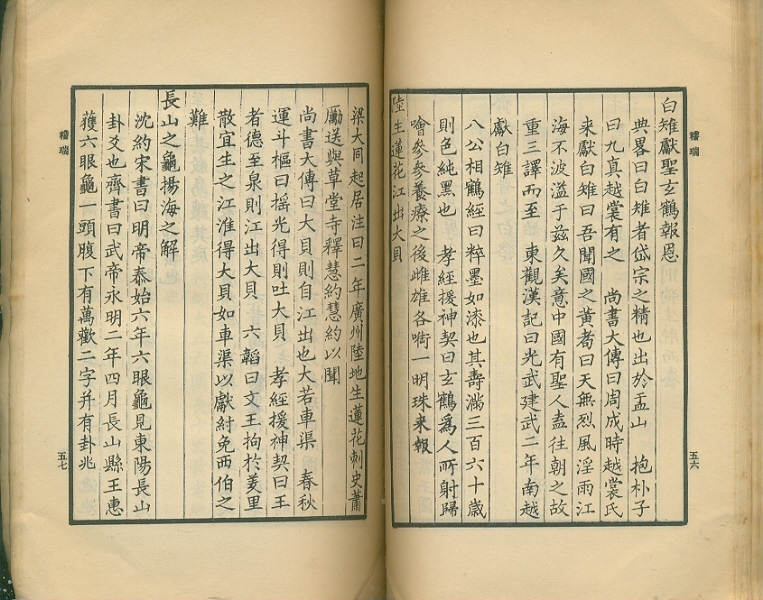 稽瑞
五六
白雉獻聖玄鶴報恩
典畧曰白雉者岱宗之精也出於孟山 抱朴子
曰九真越裳有之 尚書大傳曰周成時越裳氏
來獻白雉曰吾聞國之黃耇曰天無烈風淫雨江
海不波溢于茲久矣意中國有聖人盍往朝之故
重三譯而至 東觀漢記曰光武建武二年南越
獻白雉
八公相鶴經曰粹墨如漆也其壽滿三百六十歲
則色純黑也 孝經援神契曰玄鶴為人所射歸
噲參參養療之後雌雄各㗸一明珠来報
陸生蓮花江出大貝
梁大同起居注曰二年廣州陸地生蓮花刺史蕭
勵送與草堂寺釋慧約慧約以聞
尚書大傳曰大貝則自江出也大若車渠 春秋
運斗樞曰揺光得則吐大貝 孝經援神契曰王
者德至泉則江出大貝 六韜曰文王拘於羑里
散宜生之江淮得大貝如車渠以獻紂免西伯之
難
長山之龜揚海之解
沈約宋書曰明帝泰始六年六眼龜見東陽長山
卦爻也齊書曰武帝永明二年四月長山縣王惠
獲六眼龜一頭腹下有萬歡二字并有卦兆
稽瑞
五七